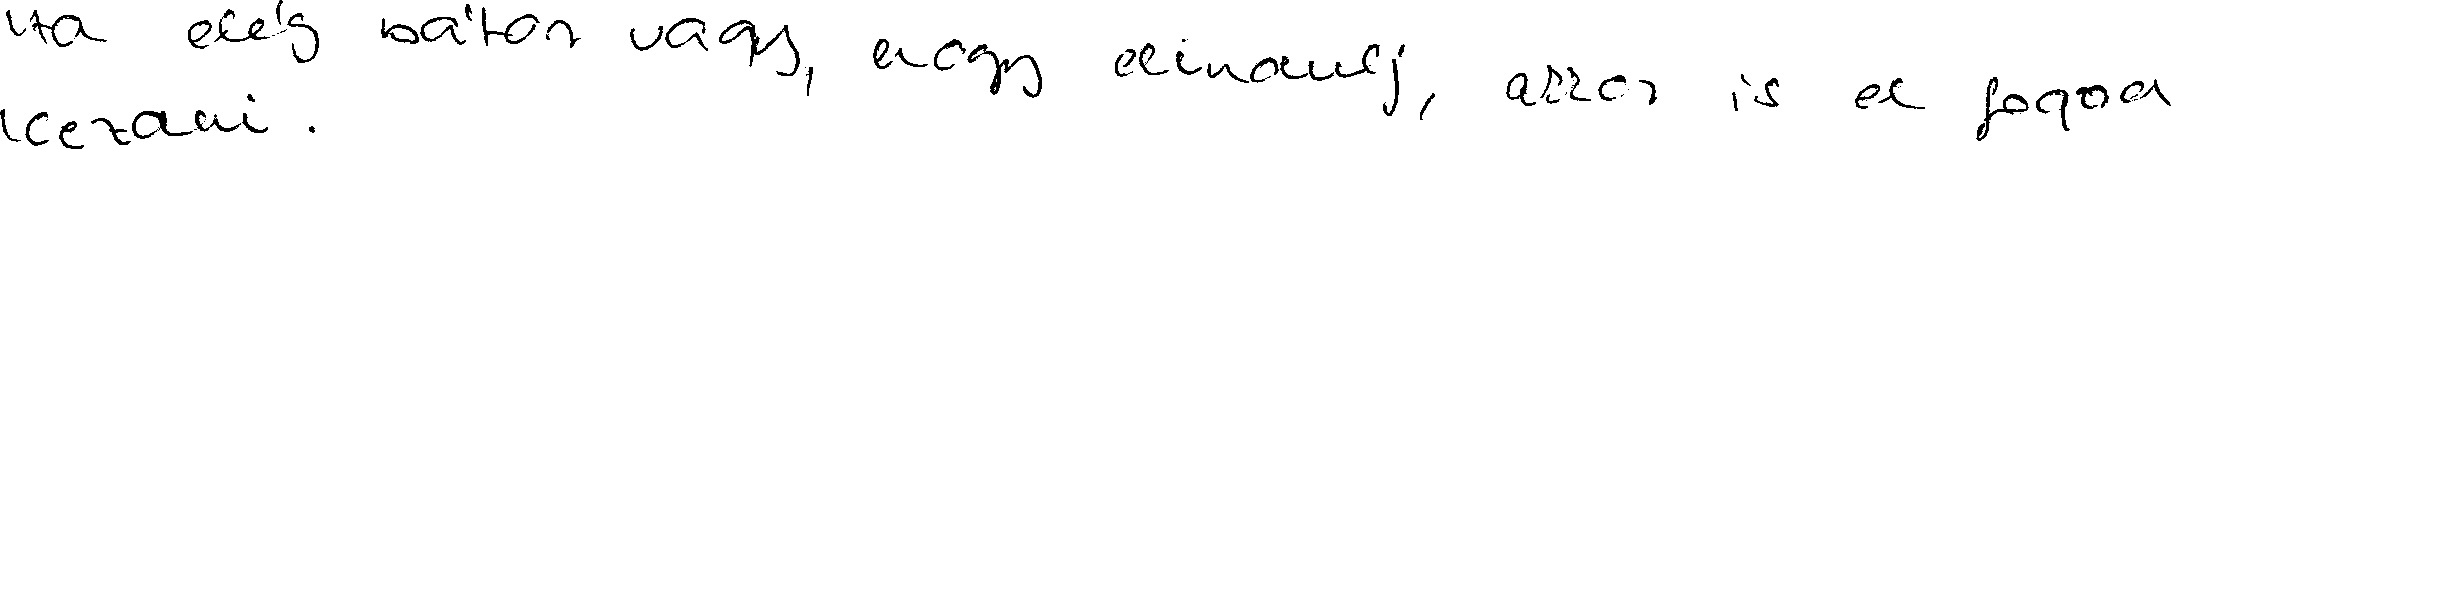 Ha elég bátor vagy, hogy elindulj, akkor is el fogod
kezdeni.